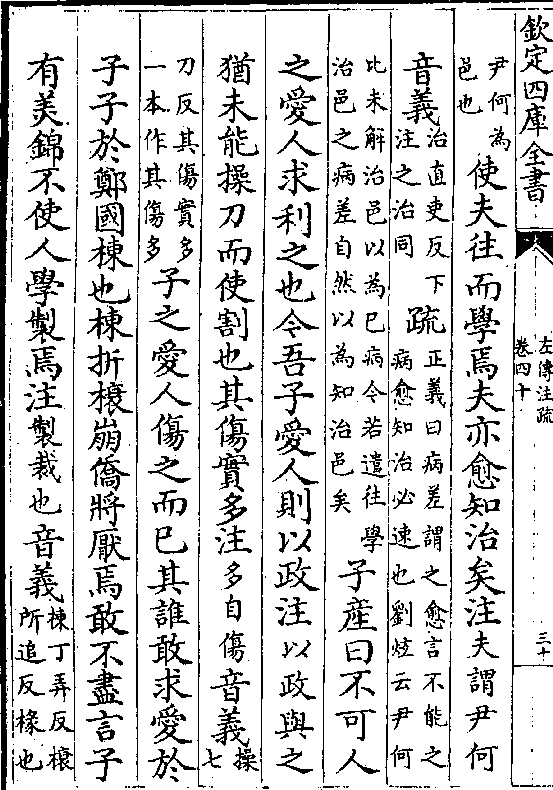 欽定四庫全書
左傳注疏
卷四十
三十
尹何為
邑也
使夫往而學焉夫亦愈知治矣注夫謂尹何
音義
治直吏反下
注之治同
疏
正義曰病差謂之愈言不能之
病愈知治必速也劉炫云尹何
比未解治邑以為已病令若遣往學
治邑之病差自然以為知治邑矣
子產曰不可人
之愛人求利之也令吾子愛人則以政注以政與之
猶未能操刀而使割也其傷實多注多自傷音義
操
七
刀反其傷實多
一本作其傷多
子之愛人傷之而已其誰敢求愛於
子子於鄭國棟也棟折榱崩僑將厭焉敢不盡言子
有美錦不使人學製焉注製裁也音義
棟丁弄反榱
所追反椽也